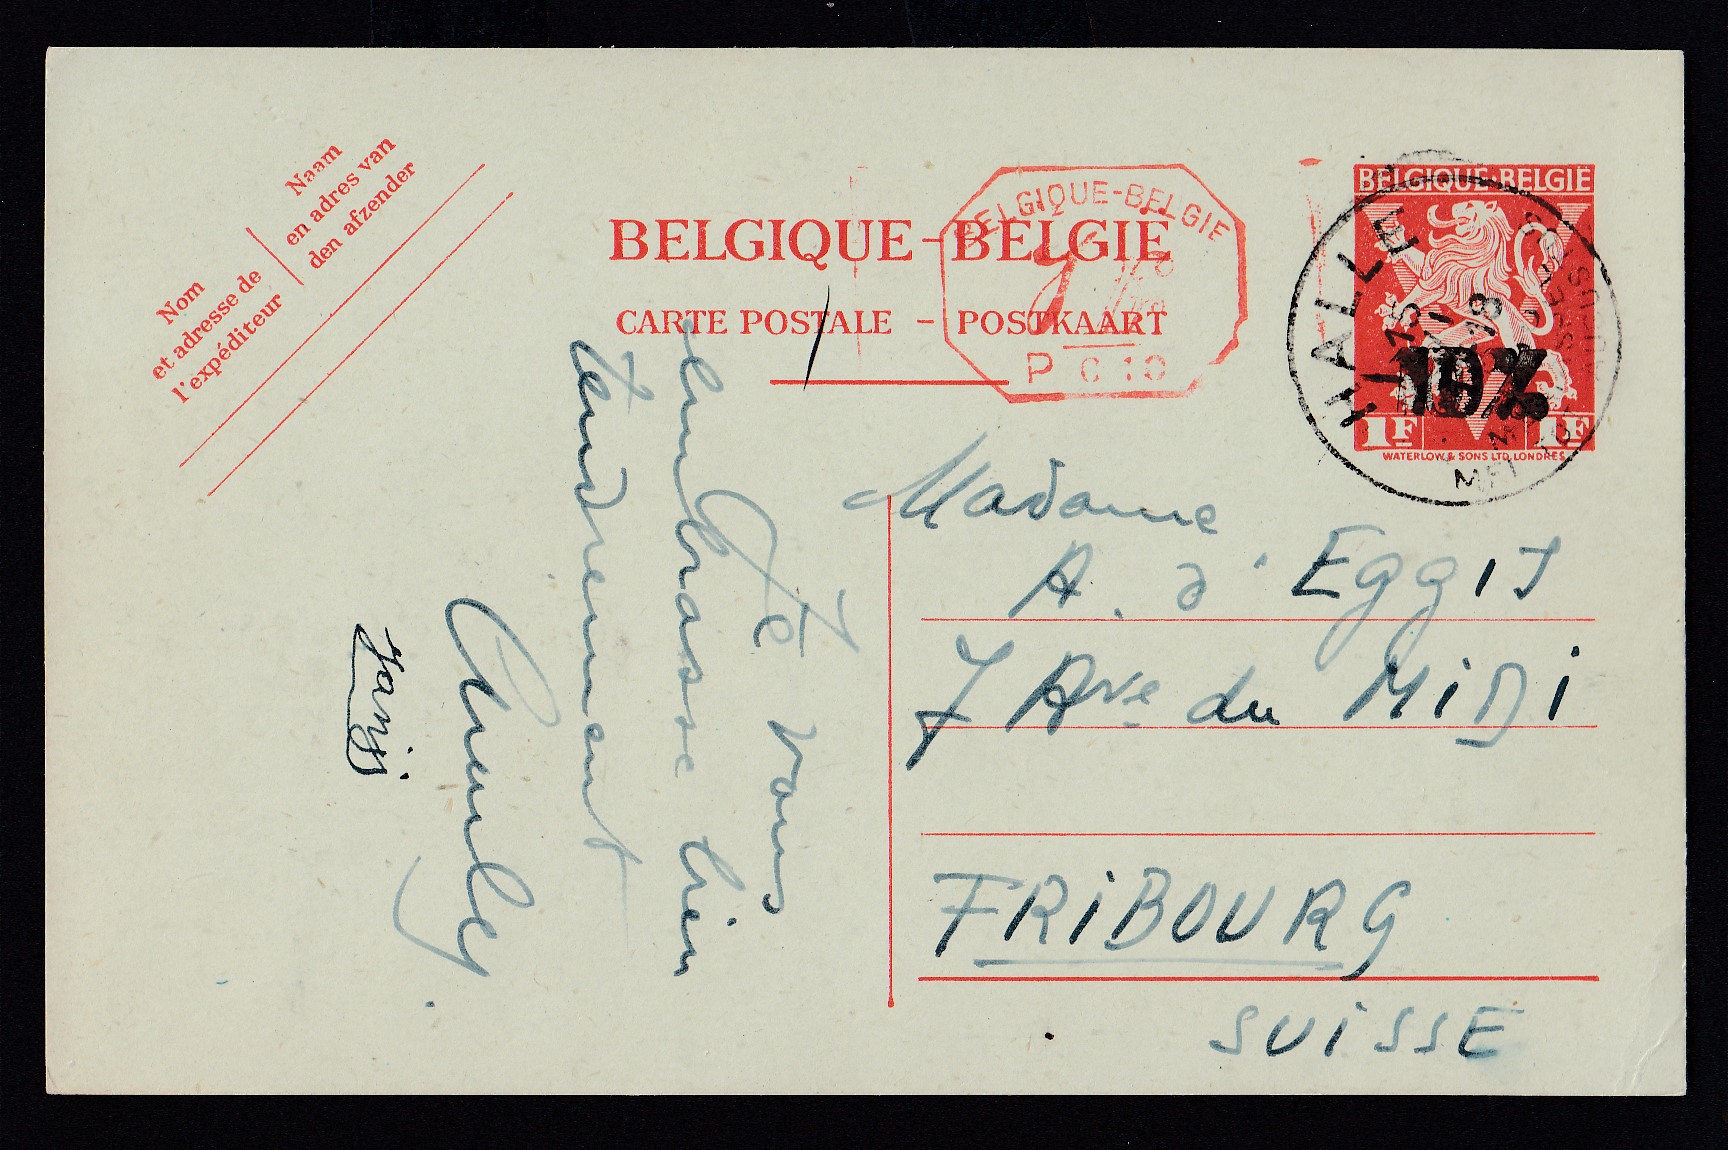 Nom
et adresse de
l'expéditeur
Naam
en adres van
den afzender
BELGIQUE-BELGIË
CARTE POSTALE - POSTKAART
BELGIQUE-BELGIE
P C 10
BELGIQUE-BELGIË
10%
1F 1F
WATERLOW & SONS LTD. LONDRES
HALLE
15
18
Madame
A. d'Eggis
7 Ave du MiDi
FRiBOURG
SUiSSE
Je vous
embrasse bien
tendrement